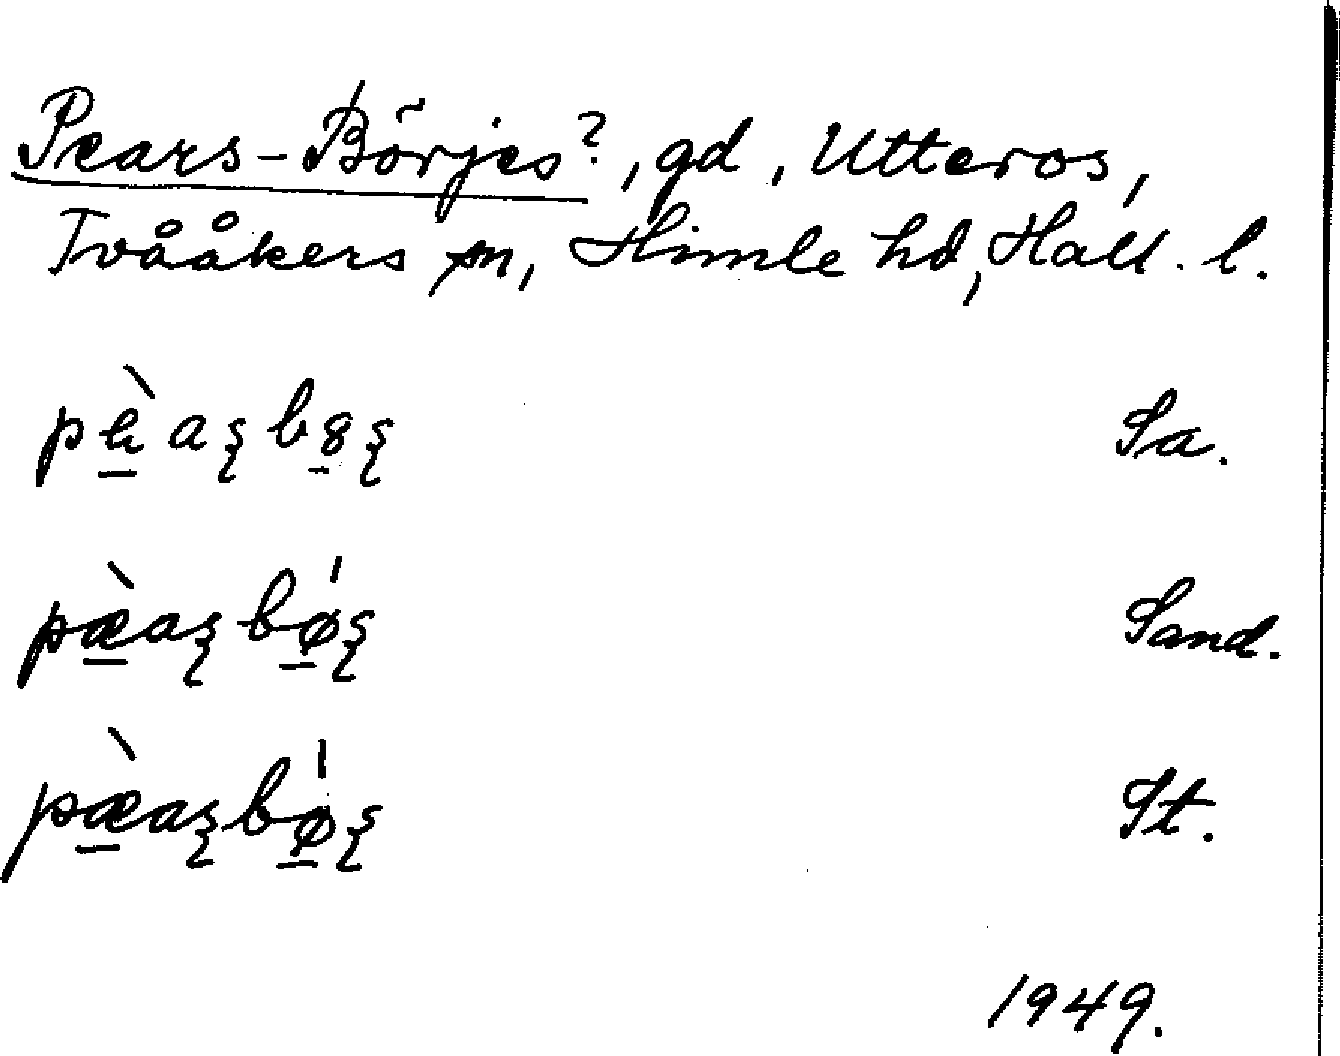 Pears-Börjes?, gd, Utteros,
Tvååkers sn, Himle hd, Hall. l.
Sa.
pæ̀aʂbǿʂ Sand.
pæ̀aʂbǿʂ St.
1949.